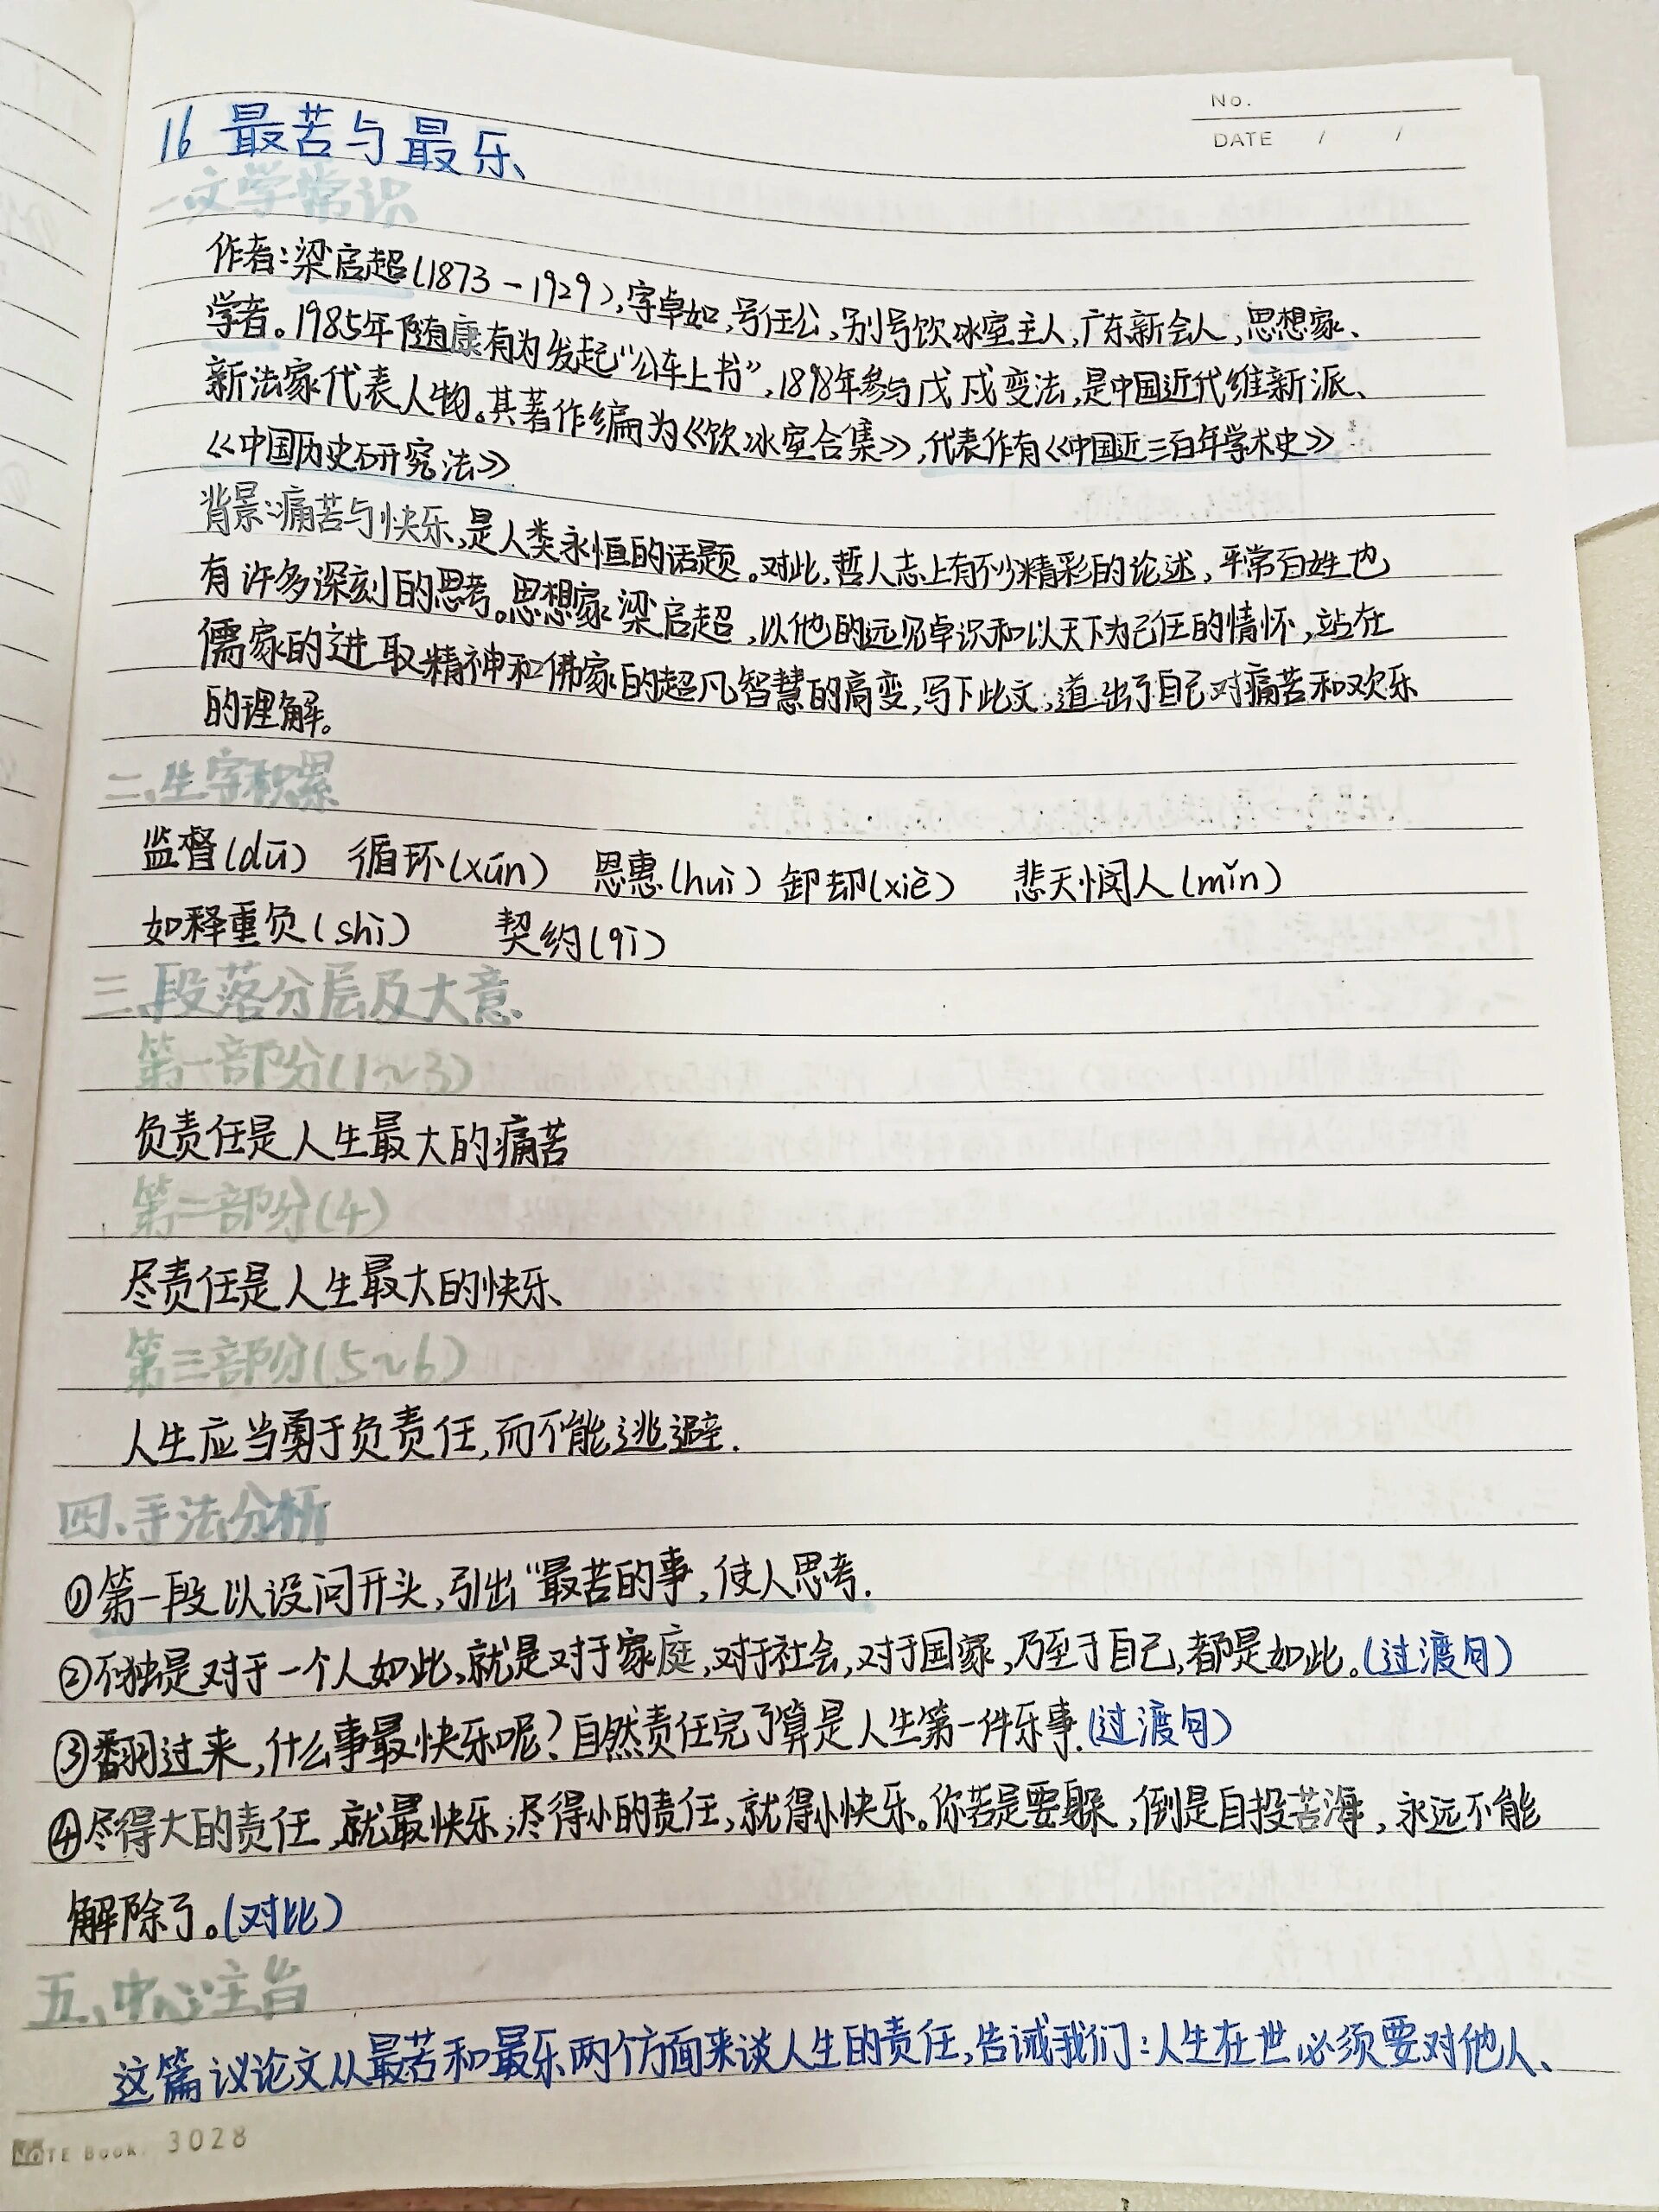 No.
DATE / /
16 最苦与最乐
一文学常识
作者:梁启超(1873-1929),字卓如,号任公,别号饮冰室主人,广东新会人,思想家、
学者。1985年随康有为发起“公车上书”,1898年参与戊戌变法,是中国近代维新派、
新法家代表人物。其著作编为《饮冰室合集》,代表作有《中国近三百年学术史》
《中国历史研究法》
背景:痛苦与快乐,是人类永恒的话题。对此,哲人志上有不少精彩的论述,平常百姓也
有许多深刻的思考。思想家梁启超,以他的远见卓识和以天下为己任的情怀,站在
儒家的进取精神和佛家的超凡智慧的高变,写下此文,道出了自己对痛苦和欢乐
的理解。
二、生字积累
监督(dū) 循环(xún) 恩惠(huì) 卸却(xiè) 悲天悯人(mǐn)
如释重负(shì) 契约(qì)
三.段落分层及大意
第一部分(1~3)
负责任是人生最大的痛苦
第二部分(4)
尽责任是人生最大的快乐
第三部分(5~6)
人生应当勇于负责任,而不能逃避.
四、手法分析
①第一段以设问开头,引出“最苦的事,使人思考.
②不独是对于一个人如此,就是对于家庭,对于社会,对于国家,乃至于自己,都是如此。(过渡句)
③翻过来,什么事最快乐呢?自然责任完了算是人生第一件乐事.(过渡句)
④尽得大的责任,就最快乐;尽得小的责任,就得小快乐。你若是要躲,倒是自投苦海,永远不能
解除了。(对比)
五、中心主旨
这篇议论文从最苦和最乐两个方面来谈人生的责任,告诫我们:人生在世必须要对他人、
NOTE Book. 3028